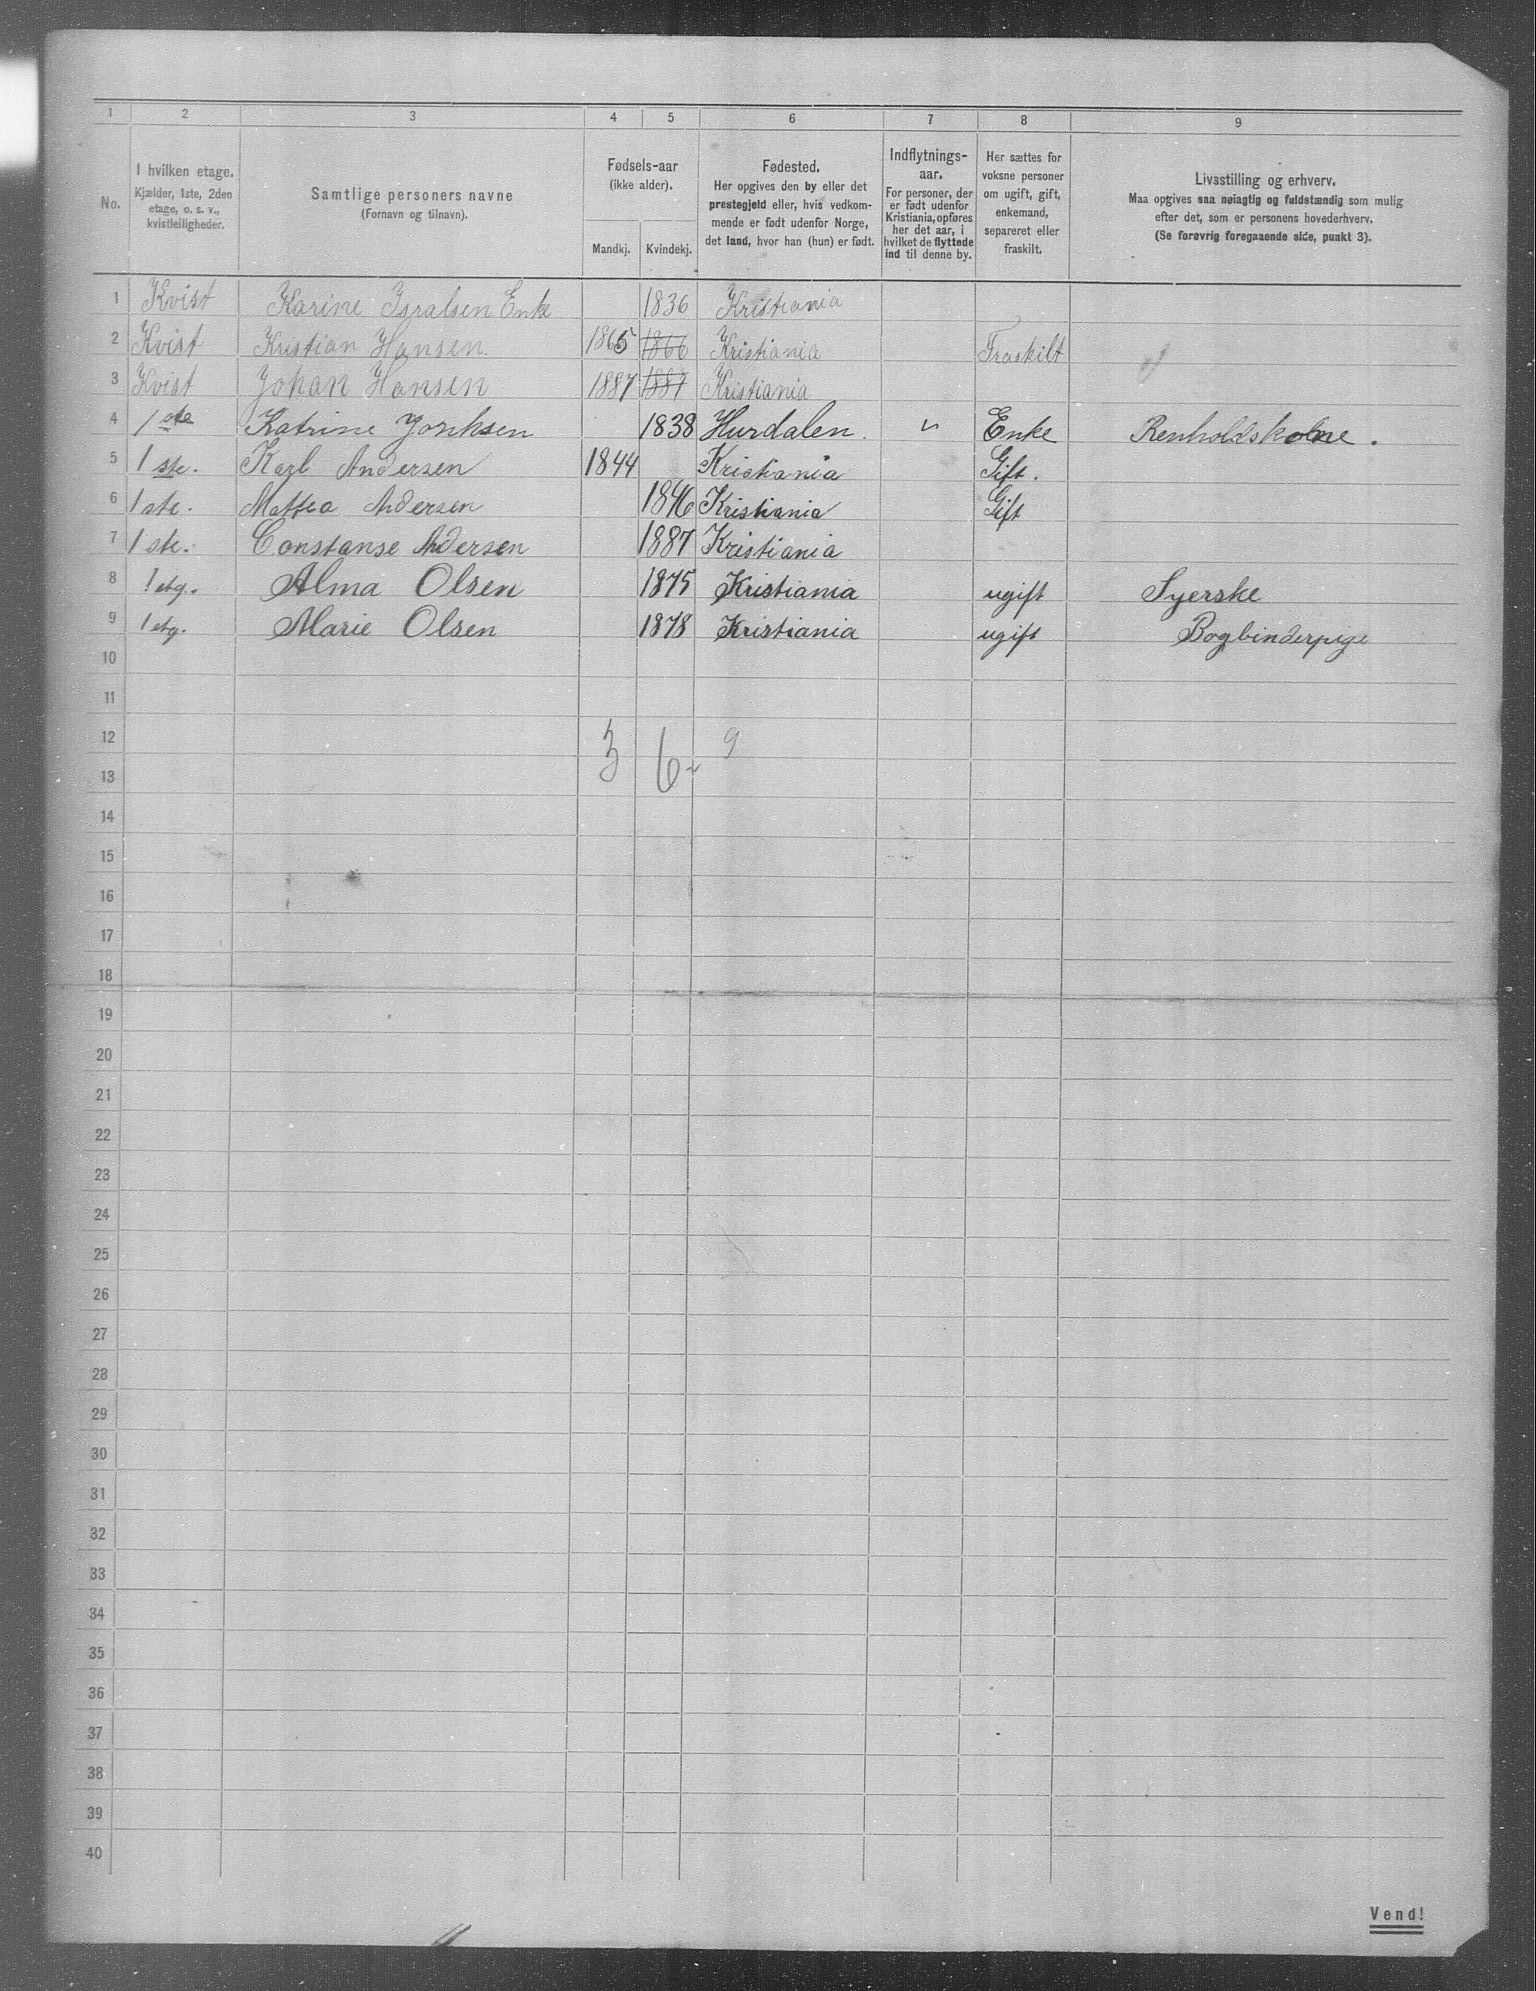 1 2 3 4 5 6 7 8 9
No.
I hvilken etage.
Kjælder, 1ste, 2den
etage, o. s. v.,
kvistleiligheder.
Samtlige personers navne
(Fornavn og tilnavn).
Fødsels-aar
(ikke alder).
Mandkj. Kvindekj.
Fødested.
Her opgives den by eller det
prestegjeld eller, hvis vedkom-
mende er født udenfor Norge,
det land, hvor han (hun) er født.
Indflytnings-
aar.
For personer, der
er født udenfor
Kristiania, opføres
her det aar, i
hvilket de flyttede
ind til denne by.
Her sættes for
voksne personer
om ugift, gift,
enkemand,
separeret eller
fraskilt.
Livsstilling og erhverv.
Maa opgives saa nøiagtig og fuldstændig som mulig
efter det, som er personens hovederhverv.
(Se forøvrig foregaaende side, punkt 3).
1 Kvist Karine Isralsen Enke 1836 Kristiania
2 Kvist Kristian Hansen. 1865 1866 Kristiania Fraskilt
3 Kvist Johan Hansen 1887 1887 Kristiania
4 1 ste Katrine 1838 Hurdalen. Enke Renholdskone.
5 1 ste. Karl Andersen 1844 Kristiania Gift.
6 1 ste. Mattea Andersen 1846 Kristiania Gift
7 1 ste. Constanse Andersen 1887 Kristiania
8 1 etg. Alma Olsen 1875 Kristiania ugift Syerske
9 1 etg. Marie Olsen 1878 Kristiania ugift Bogbinderpige
10
11
12
3 6 9
13
14
15
16
17
18
19
20
21
22
23
24
25
26
27
28
29
30
31
32
33
34
35
36
37
38
39
40
Vend!